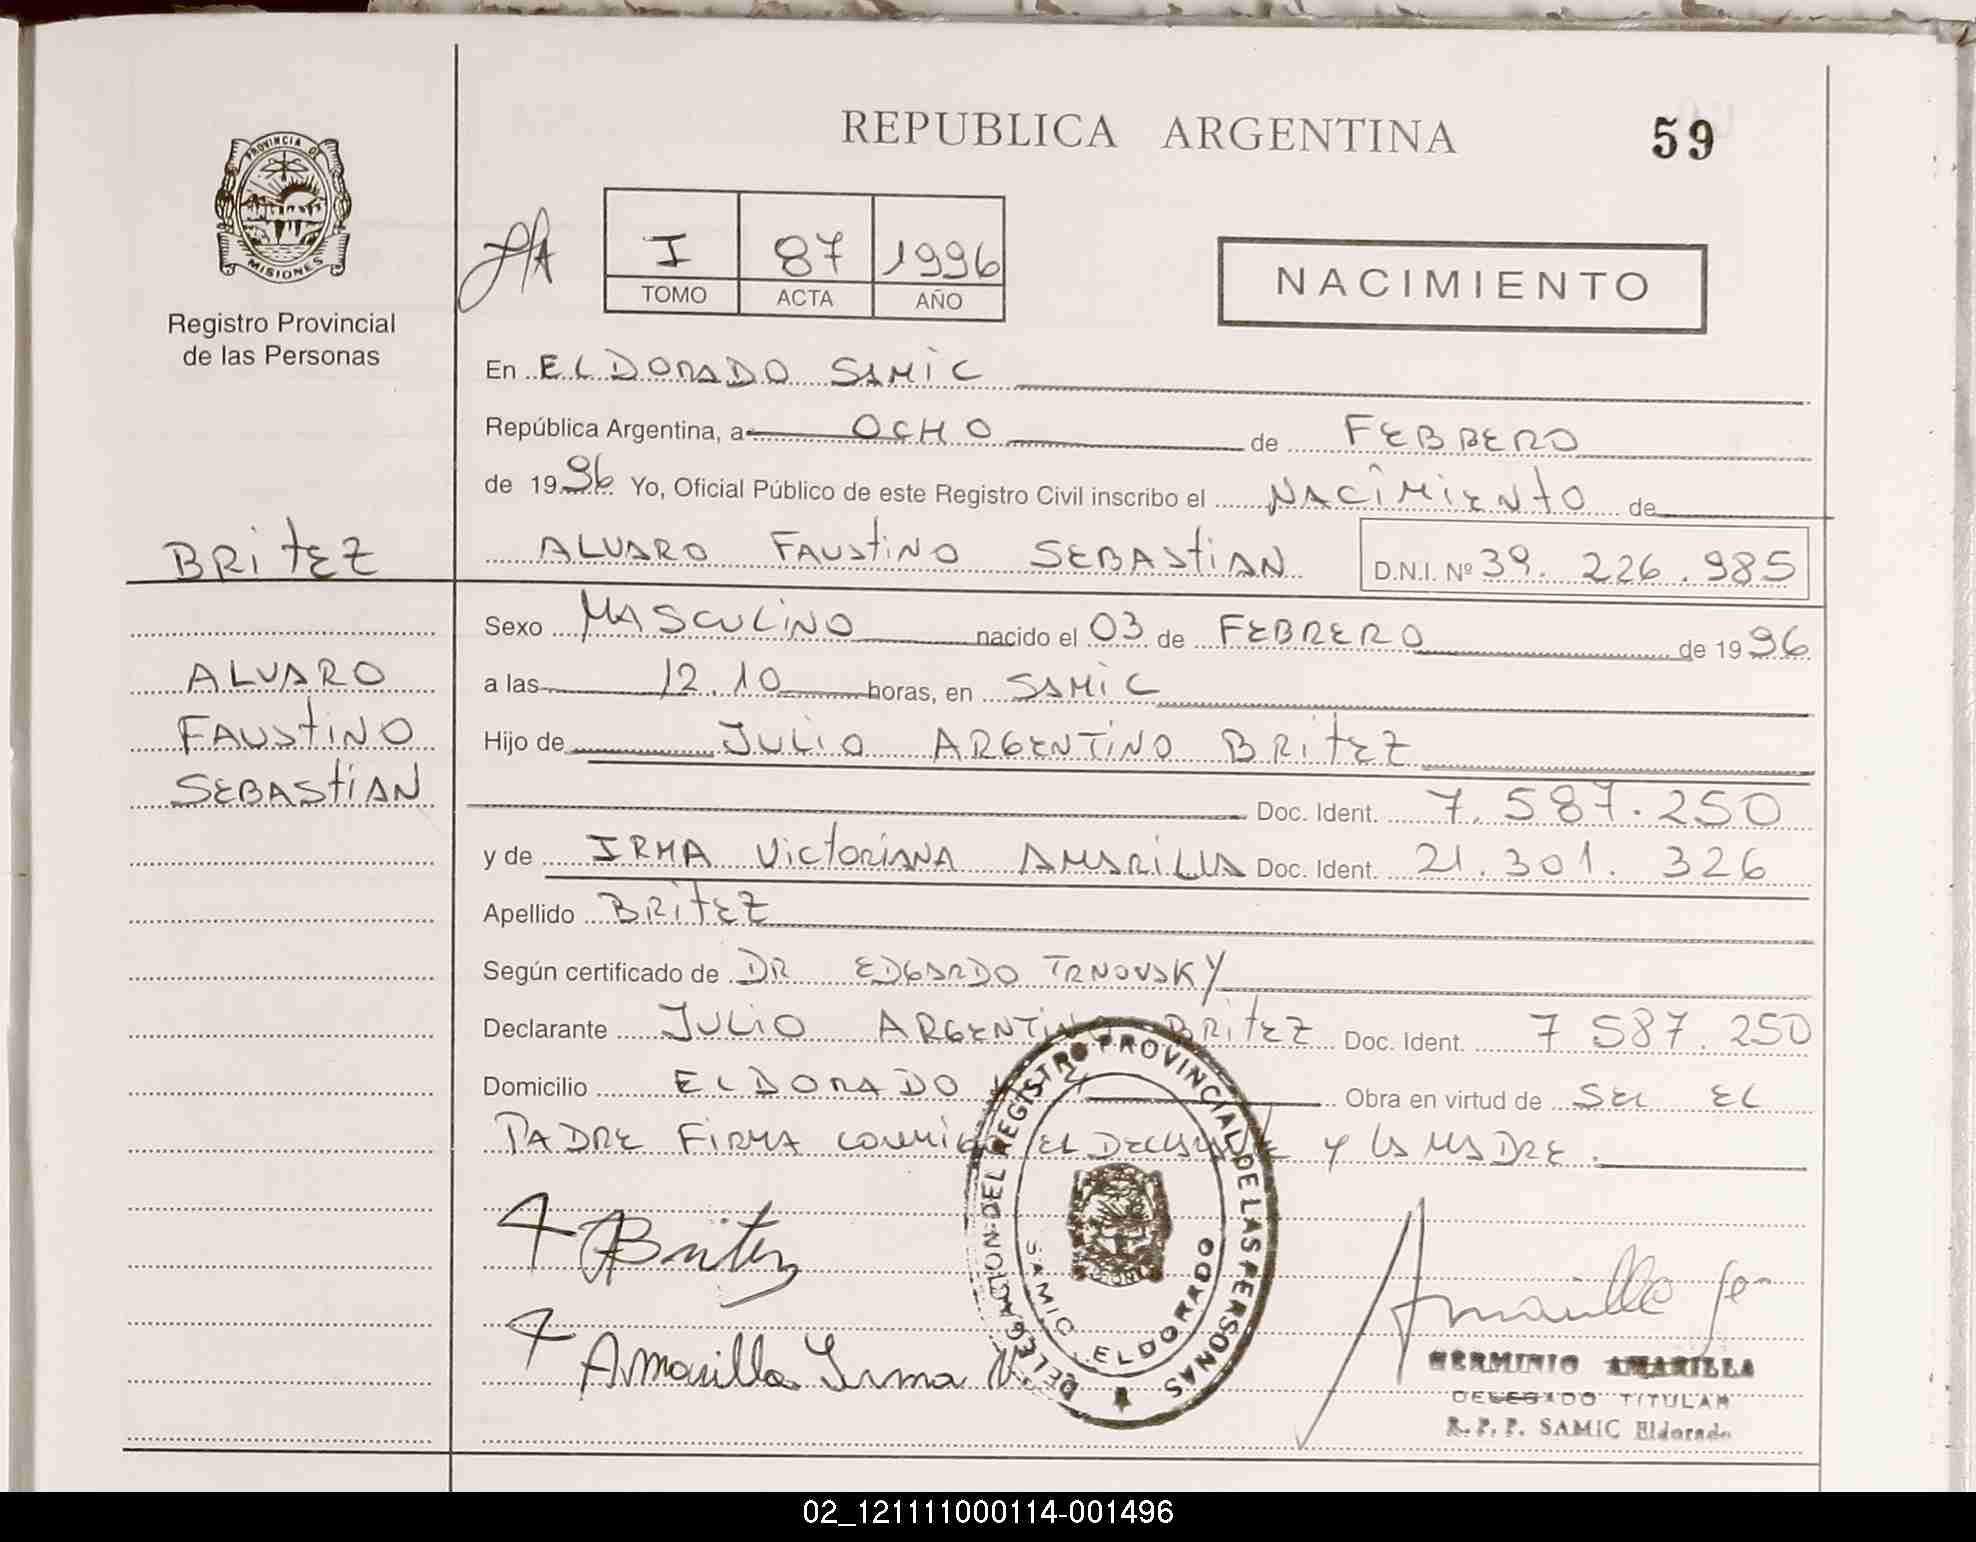 REPUBLICA ARGENTINA
59
PROVINCIA DE
MISIONES
Registro Provincial
de las Personas
I 87 1996
TOMO ACTA AÑO
NACIMIENTO
En ELDORADO SAMIC
República Argentina, a OCHO de FEBRERO
de 1996 Yo, Oficial Público de este Registro Civil inscribo el NACIMIENTO de
BRITEZ
ALVARO FAUSTINO SEBASTIAN D.N.I. Nº 39.226.985
Sexo MASCULINO nacido el 03 de FEBRERO de 1996
ALVARO
a las 12.10 horas, en SAMIC
FAUSTINO
Hijo de JULIO ARGENTINO BRITEZ
SEBASTIAN
Doc. Ident. 7.587.250
y de IRMA VICTORIANA AMARILLA Doc. Ident. 21.301.326
Apellido BRITEZ
Según certificado de DR EDGARDO TRNOVSKY
Declarante JULIO ARGENTINO BRITEZ Doc. Ident. 7 587.250
Domicilio ELDORADO Obra en virtud de SER EL
PADRE FIRMA CONMIGO EL DECLARANTE Y LA MADRE.
Britez
Amarilla Irma V.
DELEGACION DEL REGISTRO PROVINCIAL DE LAS PERSONAS
SAMIC ELDORADO
Amarilla
HERMINIO AMARILLA
DELEGADO TITULAR
R.P.P. SAMIC Eldorado
02_121111000114-001496